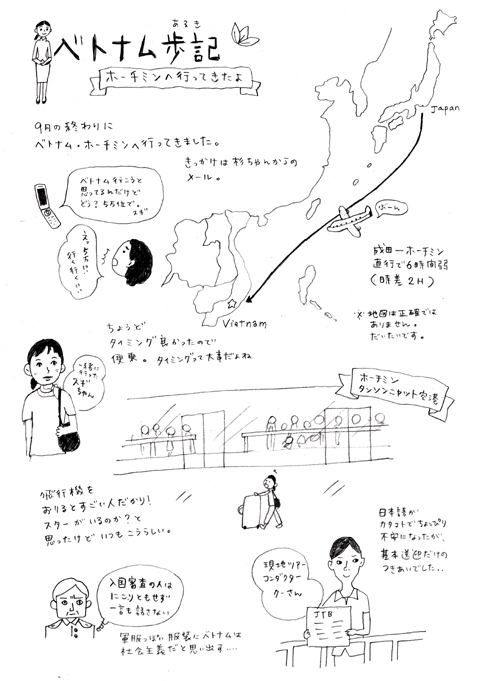 あるき
ベトナム歩記
ホーチミンへ行ってきたよ
Japan
9月の終わりに
ベトナム・ホーチミンへ行ってきました。
きっかけは杉ちゃんからの
メール。
ベトナム行こうと
思ってるんだけど
どう?5万位で。
スギ
えっ5万!!
行く行く!!
ぶーん
成田ーホーチミン
直行で6時間弱
(時差2H)
※地図は正確では
ありません。
だいたいです。
Vietnam
ちょうど
タイミング良かったので
便乗。タイミングって大事だよね
一緒に
行った
スギ
ちゃん
ホーチミン
タンソンニャット空港
飛行機を
おりるとすごい人だかり!
スターがいるのか?と
思ったけどいつもこうらしい。
日本語が
カタコトでちょっぴり
不安になったが、
基本送迎だけの
つきあいでした..
現地ツアー
コンダクター
クーさん
JTB
入国審査の人は
にこりともせず
一言も話さない
軍服っぽい服装にベトナムは
社会主義だと思い出す....